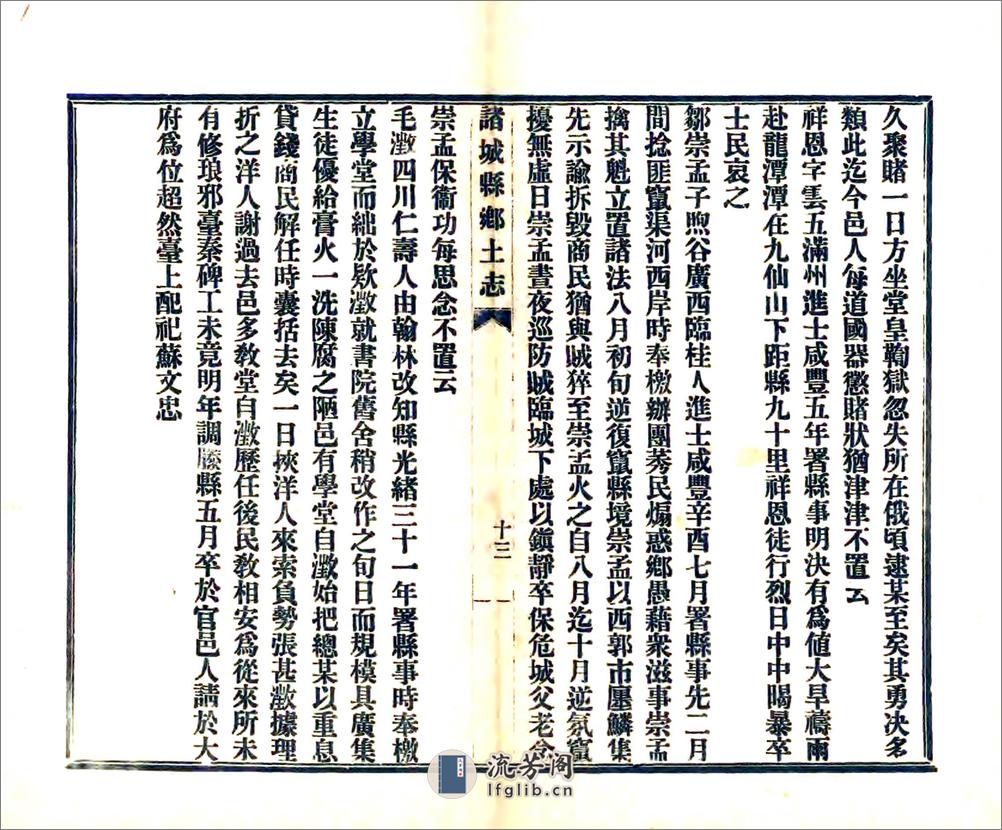 久聚賭一日方坐堂皇鞫獄忽失所在俄頃逮某至矣其勇決多
類此迄今邑人每道國器懲賭狀猶津津不置云
祥恩字雲五滿州進士咸豐五年署縣事明決有爲値大旱禱雨
赴龍潭潭在九仙山下距縣九十里祥恩徒行烈日中中暍暴卒
士民哀之
鄒崇孟子煦谷廣西臨桂人進士咸豐辛酉七月署縣事先二月
間捻匪竄渠河西岸時奉檄辦團莠民煽惑鄉愚藉衆滋事崇孟
擒其魁立置諸法八月初旬逆復竄縣境崇孟以西郭市廛鱗集
先示諭拆毀商民猶與賊猝至崇孟火之自八月迄十月逆氛竄
擾無虛日崇孟晝夜巡防賊臨城下處以鎭靜卒保危城父老念
諸城縣鄉土志
十三
崇孟保衞功每思念不置云
毛澂四川仁壽人由翰林改知縣光緒三十一年署縣事時奉檄
立學堂而絀於欵澂就書院舊舍稍改作之旬日而規模具廣集
生徒優給膏火一洗陳腐之陋邑有學堂自澂始把總某以重息
貸錢商民解任時囊括去矣一日挾洋人來索負勢張甚澂據理
折之洋人謝過去邑多敎堂自澂歷任後民敎相安爲從來所未
有修琅邪臺秦碑工未竟明年調滕縣五月卒於官邑人請於大
府爲位超然臺上配祀蘇文忠
流芳阁
lfglib.cn